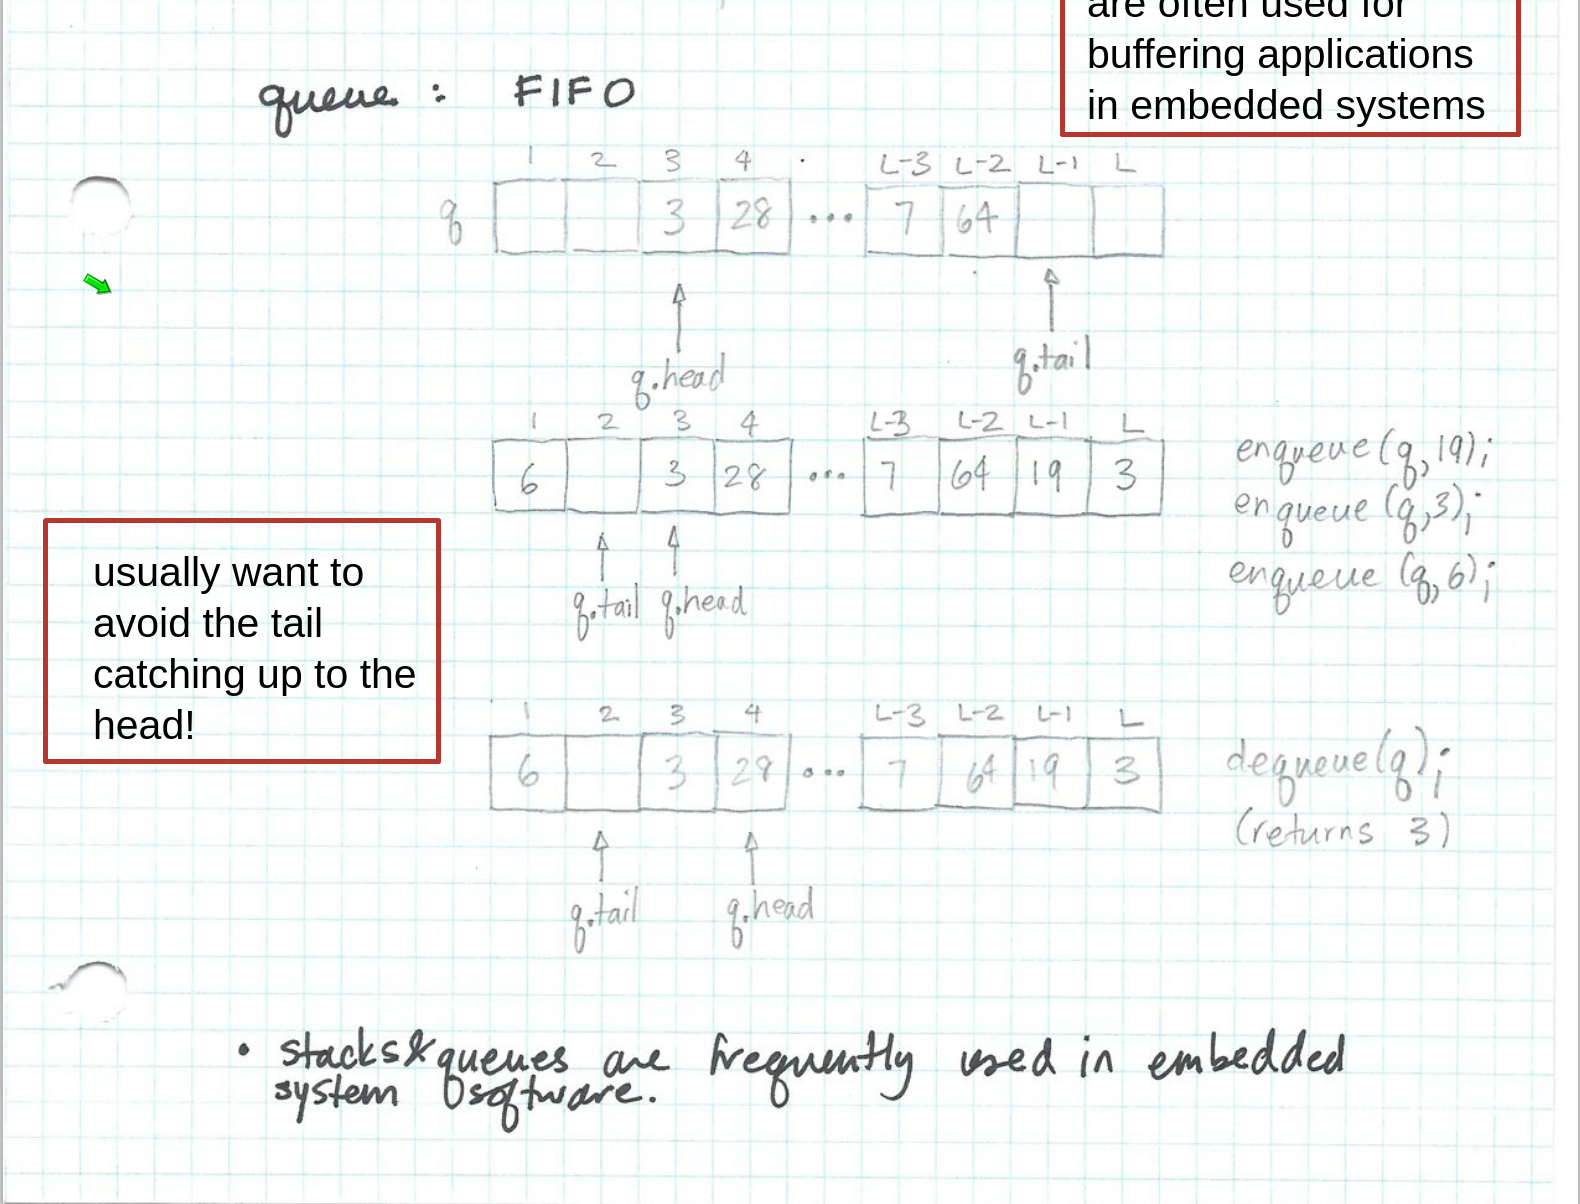 are often used for
buffering applications
in embedded systems
queue : FIFO
1 2 3 4 . L-3 L-2 L-1 L
q 3 28 ... 7 64
q.head q.tail
1 2 3 4 L-3 L-2 L-1 L
6 3 28 ... 7 64 19 3
enqueue(q,19);
enqueue(q,3);
enqueue(q,6);
q.tail q.head
usually want to
avoid the tail
catching up to the
head!
1 2 3 4 L-3 L-2 L-1 L
6 3 29 ... 7 64 19 3
dequeue(q);
(returns 3)
q.tail q.head
• stacks & queues are frequently used in embedded
system software.